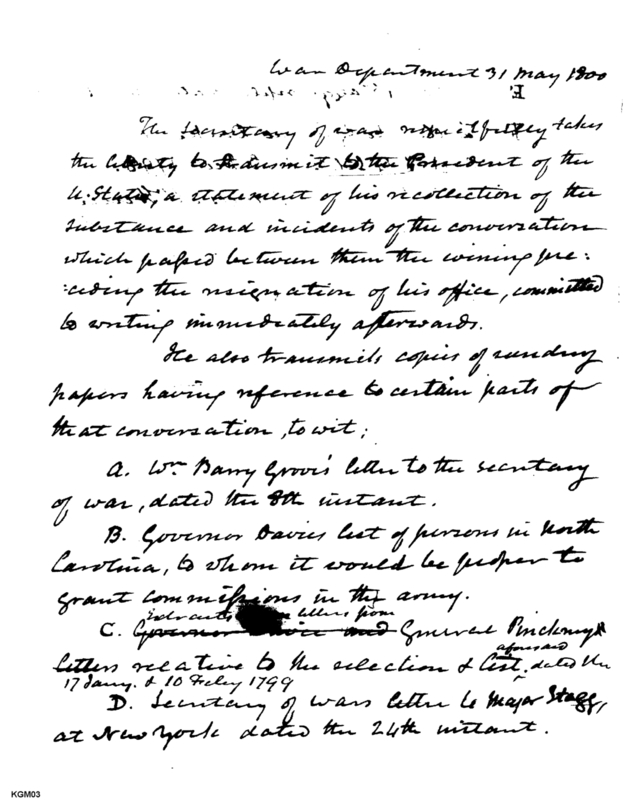 War Department 31 May 1800
E
The Secretary of war respectfully takes
the liberty to transmit to the President of the
U. States, a statement of his recollection of the
substance and incidents of the conversation
which passed between them the evening pre:
:ceding the resignation of his office, committed
to writing immediately afterwards.
He also transmits copies of sundry
papers having reference to certain parts of
that conversation, to wit;
A. Wm Barry Grove's letter to the secretary
of war, dated the 8th instant.
B. Governor Davies list of persons in North
Carolina, to whom it would be proper to
grant commissions in the army.
Extracts letters from
C. Governor Davie and General Pinckney
aforesaid
letters relative to the selection & list, dated the
17 Jany. & 10 Feby 1799
D. Secretary of wars letter to Major Stagg,
at New York dated the 24th instant.
KGM03